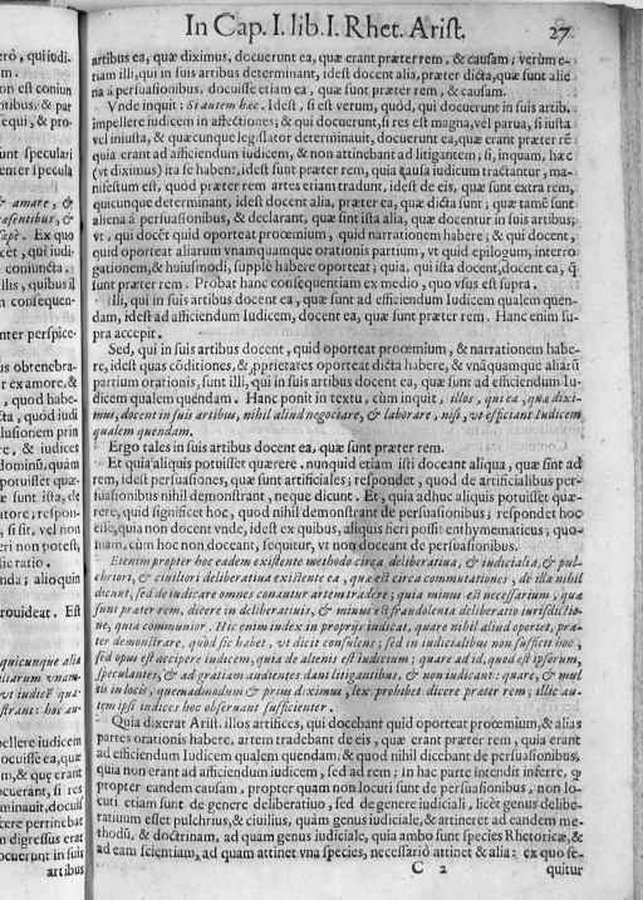 In Cap. I. lib. I. Rhet. Arist.
27
artibus ea, quæ diximus, docuerunt ea, quæ erant præter rem, & causam; verùm e-
tiam illi, qui in suis artibus determinant, idest docent alia, præter dicta, quæ sunt alie
na à persuasionibus, docuisse etiam ea, quæ sunt præter rem, & causam.
Vnde inquit: Si autem hæc. Idest, si est verum, quòd, qui docuerunt in suis artib.
impellere iudicem in affectiones; & qui docuerunt, si res est magna, vel parua, si iusta
vel iniusta, & quæcunque legislator determinauit, docuerunt ea, quæ erant præter rē
quia erant ad afficiendum iudicem, & non attinebant ad litigantem; si, inquam, hæc
(vt diximus) ita se habent, idest sunt præter rem, quia causa iudicum tractantur, ma-
nifestum est, quòd præter rem artes etiam tradunt, idest de eis, quæ sunt extra rem,
quicunque determinant, idest docent alia, præter ea, quæ dicta sunt; quæ tamē sunt
aliena à persuasionibus, & declarant, quæ sint ista alia, quæ docentur in suis artibus;
vt, qui docēt quid oporteat proœmium, quid narrationem habere; & qui docent,
quid oporteat aliarum vnamquamque orationis partium, vt quid epilogum, interro
gationem, & huiusmodi, supplè habere oporteat; quia, qui ista docent, docent ea, q̃
sunt præter rem. Probat hanc consequentiam ex medio, quo vsus est supra.
Illi, qui in suis artibus docent ea, quæ sunt ad efficiendum Iudicem qualem quen-
dam, idest ad afficiendum Iudicem, docent ea, quæ sunt præter rem. Hanc enim su-
pra accepit.
Sed, qui in suis artibus docent, quid oporteat proœmium, & narrationem habe-
re, idest quas cōditiones, & proprietates oporteat dicta habere, & vnāquamque aliarū
partium orationis, sunt illi, qui in suis artibus docent ea, quæ sunt ad efficiendum Iu-
dicem qualem quendam. Hanc ponit in textu, cùm inquit, illos, qui ea, quæ dixi-
mus, docent in suis artibus, nihil aliud negociare, & laborare, nisi, vt efficiant Iudicem
qualem quendam.
Ergo tales in suis artibus docent ea, quæ sunt præter rem.
Et quia aliquis potuisset quærere, nunquid etiam isti doceant aliqua, quæ sint ad
rem, idest persuasiones, quæ sunt artificiales; respondet, quòd de artificialibus per-
suasionibus nihil demonstrant, neque dicunt. Et, quia adhuc aliquis potuisset quæ-
rere, quid significet hoc, quod nihil demonstrant de persuasionibus; respondet hoc
esse, quia non docent vnde, idest ex quibus, aliquis fieri possit enthymematicus; quo-
niam, cùm hoc non doceant, sequitur, vt non doceant de persuasionibus.
Etenim propter hoc eadem existente methodo circa deliberatiua, & iudicialia, & pul-
chriori, & ciuiliori deliberatiua existente ea, quæ est circa commutationes, de illa nihil
dicunt, sed de iudicare omnes conantur artem tradere; quia minus est necessarium, quæ
sunt præter rem, dicere in deliberatiuis, & minus est fraudolenta deliberatio iurisdictio-
ne, quia communior. Hic enim iudex in proprijs iudicat, quare nihil aliud oportet, præ-
ter demonstrare, quòd sic habet, vt dicit consulens; sed in iudicialibus non sufficit hoc,
sed opus est accipere iudicem, quia de alienis est iudicium; quare ad id, quod est ipsorum,
speculantes, & ad gratiam audientes dant litigantibus, & non iudicant: quare, & mul
tis in locis, quemadmodum & prius diximus, lex prohibet dicere præter rem; illic au-
tem ipsi iudices hoc obseruant sufficienter.
Quia dixerat Arist. illos artifices, qui docebant quid oporteat proœmium, & alias
partes orationis habere, artem tradebant de eis, quæ erant præter rem, quia erant
ad efficiendum Iudicem qualem quendam, & quod nihil dicebant de persuasionibus,
quia non erant ad afficiendum iudicem, sed ad rem; in hac parte intendit inferre, ꝙ
propter eandem causam, propter quam non locuti sunt de persuasionibus, non lo-
cuti etiam sunt de genere deliberatiuo, sed de genere iudiciali, licèt genus delibe-
ratiuum esset pulchrius, & ciuilius, quàm genus iudiciale, & attineret ad eandem me-
thodū, & doctrinam, ad quam genus iudiciale, quia ambo sunt species Rhetoricæ, &
ad eam scientiam, ad quam attinet vna species, necessariò attinet & alia: ex quo se-
C 2
quitur